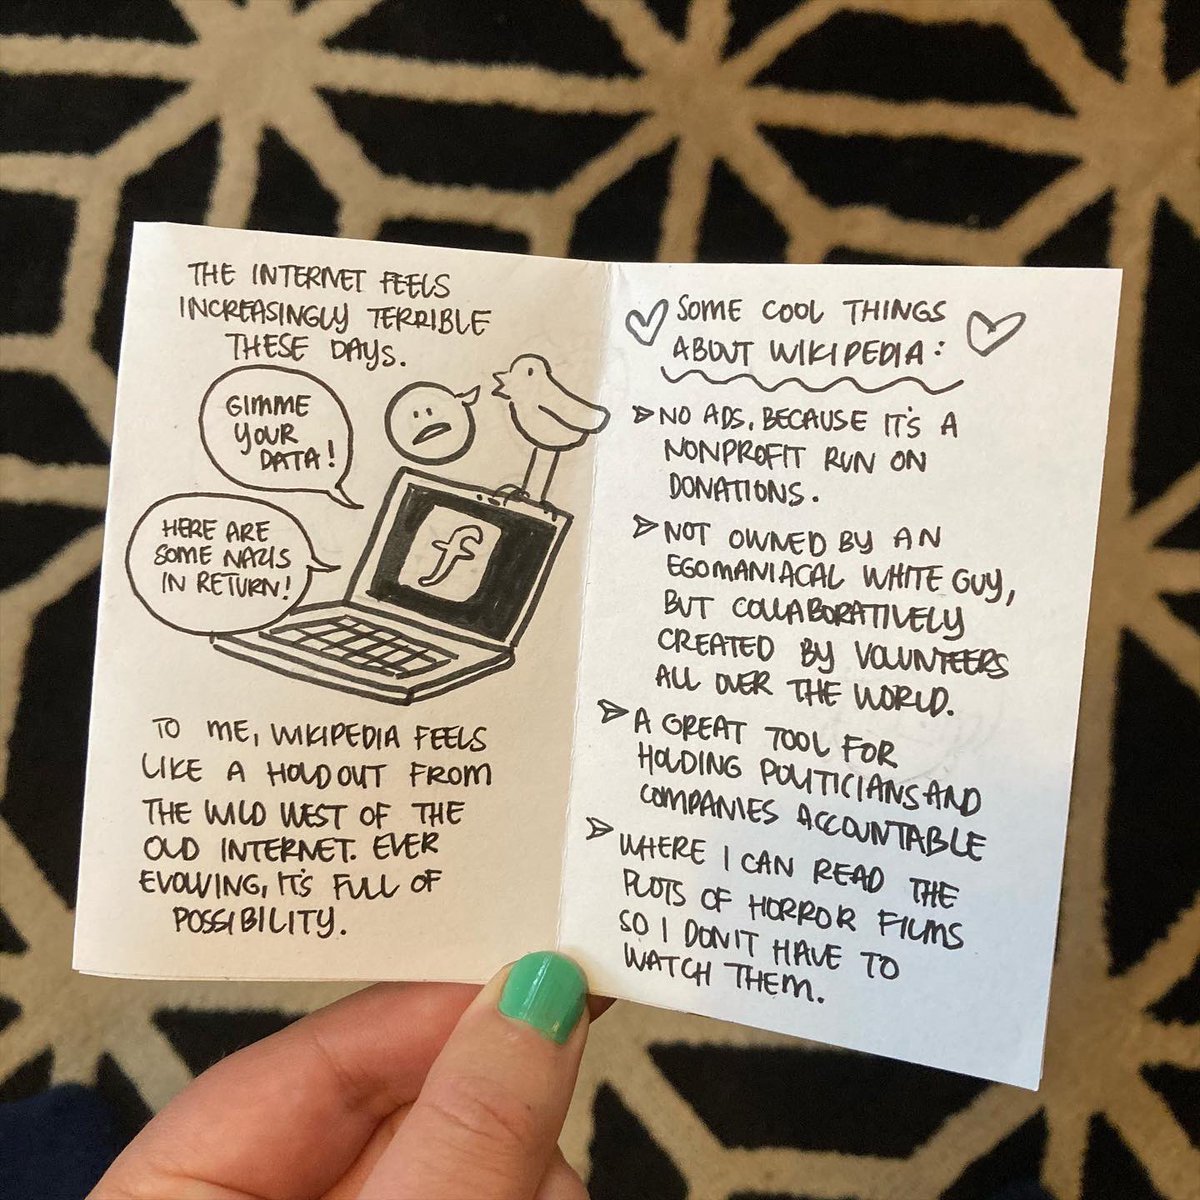 THE INTERNET FEELS
INCREASINGLY TERRIBLE
THESE DAYS.
GIMME
YOUR
DATA!
HERE ARE
SOME NAZIS
IN RETURN!
f
TO ME, WIKIPEDIA FEELS
LIKE A HOLDOUT FROM
THE WILD WEST OF THE
OLD INTERNET. EVER
EVOLVING, IT'S FULL OF
POSSIBILITY.
SOME COOL THINGS
ABOUT WIKIPEDIA:
NO ADS, BECAUSE IT'S A
NONPROFIT RUN ON
DONATIONS.
NOT OWNED BY AN
EGOMANIACAL WHITE GUY,
BUT COLLABORATIVELY
CREATED BY VOLUNTEERS
ALL OVER THE WORLD.
A GREAT TOOL FOR
HOLDING POLITICIANS AND
COMPANIES ACCOUNTABLE
WHERE I CAN READ THE
PLOTS OF HORROR FILMS
SO I DON'T HAVE TO
WATCH THEM.